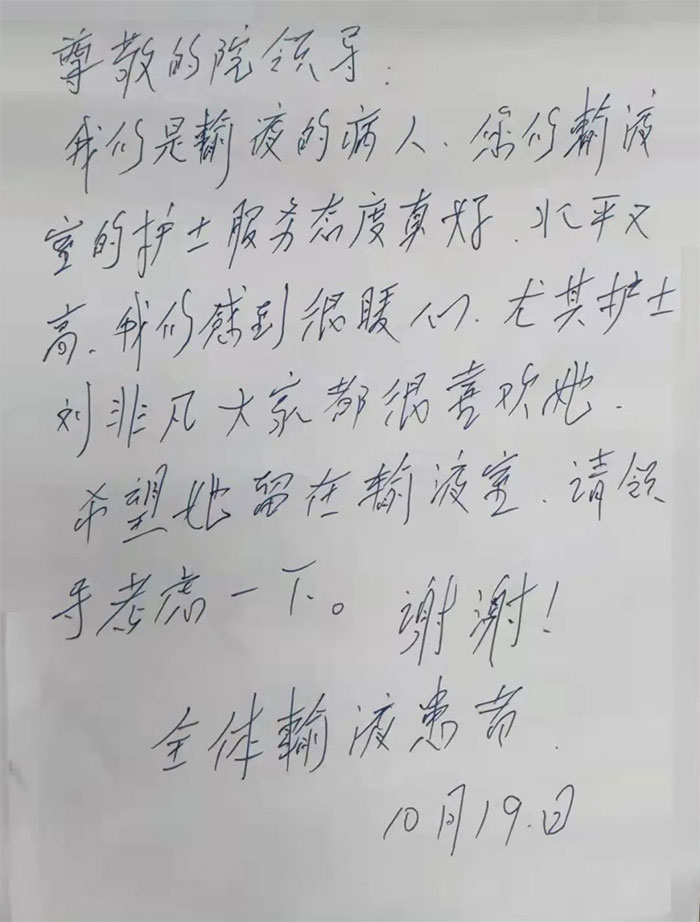 尊敬的院领导:
我们是输液的病人、您们输液
室的护士服务态度真好、水平又
高、我们感到很暖心、尤其护士
刘非凡大家都很喜欢她.
希望她留在输液室、请领
导考虑一下。谢谢!
全体输液患者.
10月19.日